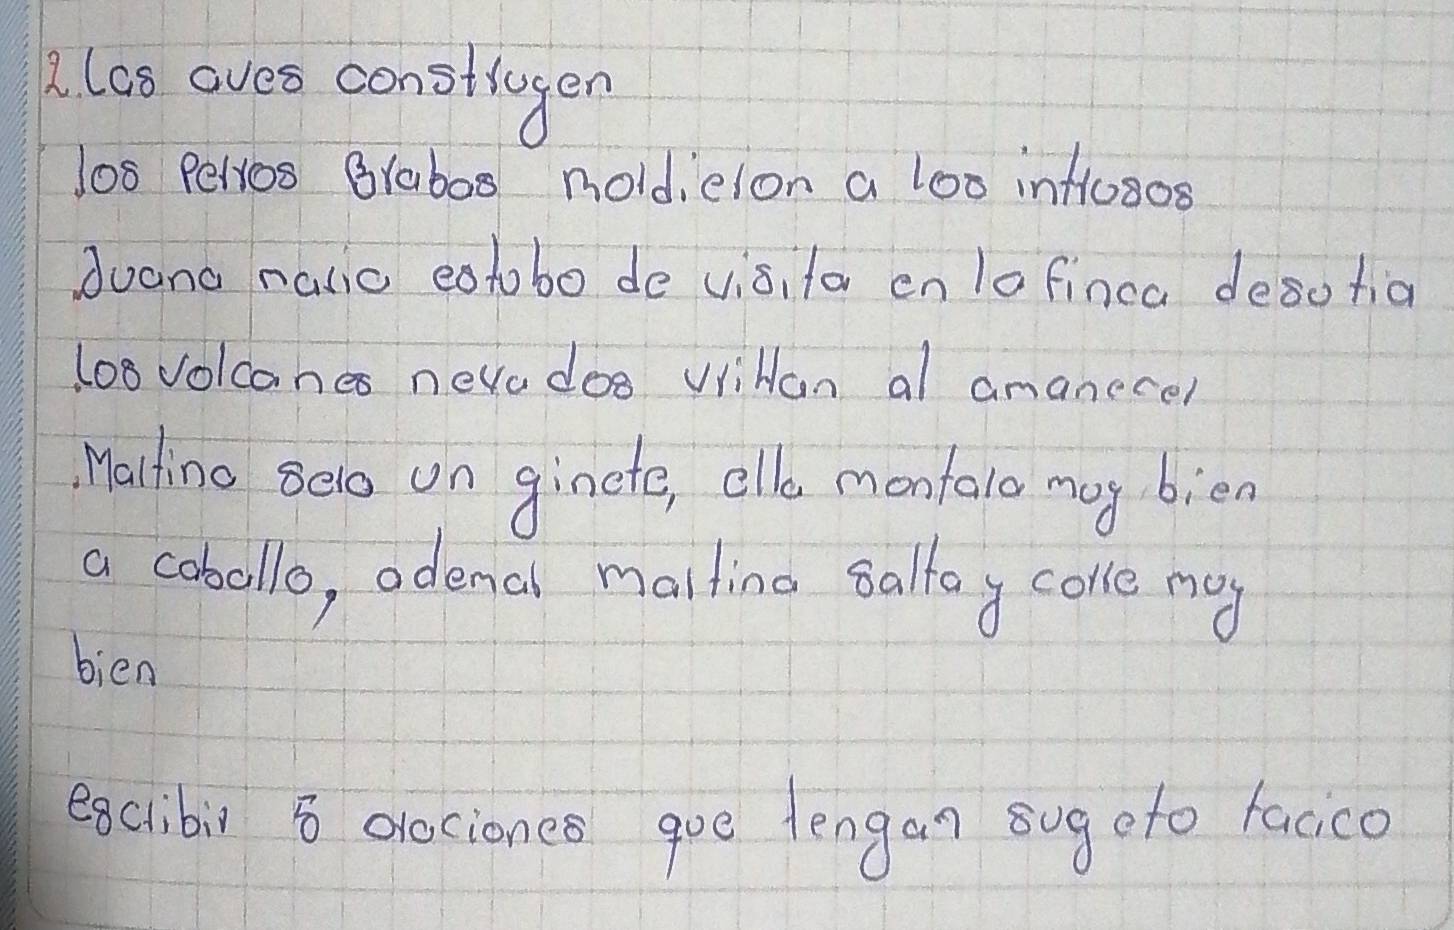 2. Las aves construgen
los Perros Brabos mordieron a los intrusos
Juana maria estubo de visita en la finca desu tia
los volcanes nevados vrillan al amanecer
Martina sera un ginete, ella montara muy bien
a caballo, ademas martina salta y corre muy
bien
escribir 5 oraciones que tengan sugeto tacico